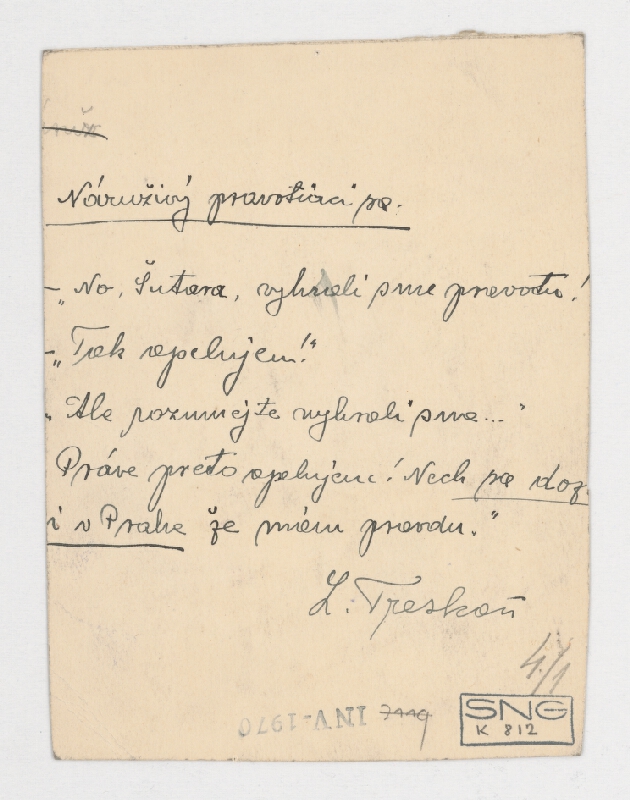 Náruživý pravotiaci sa.
– „No, Šutara, vyhrali sme pravotu!
– „Tak apelujem!“
„Ale rozumejte vyhrali sme..."
Práve preto apelujem! Nech sa doz
i v Prahe že mám pravdu."
L. Treskoň
4/1
INV-1970
SNG
K 812